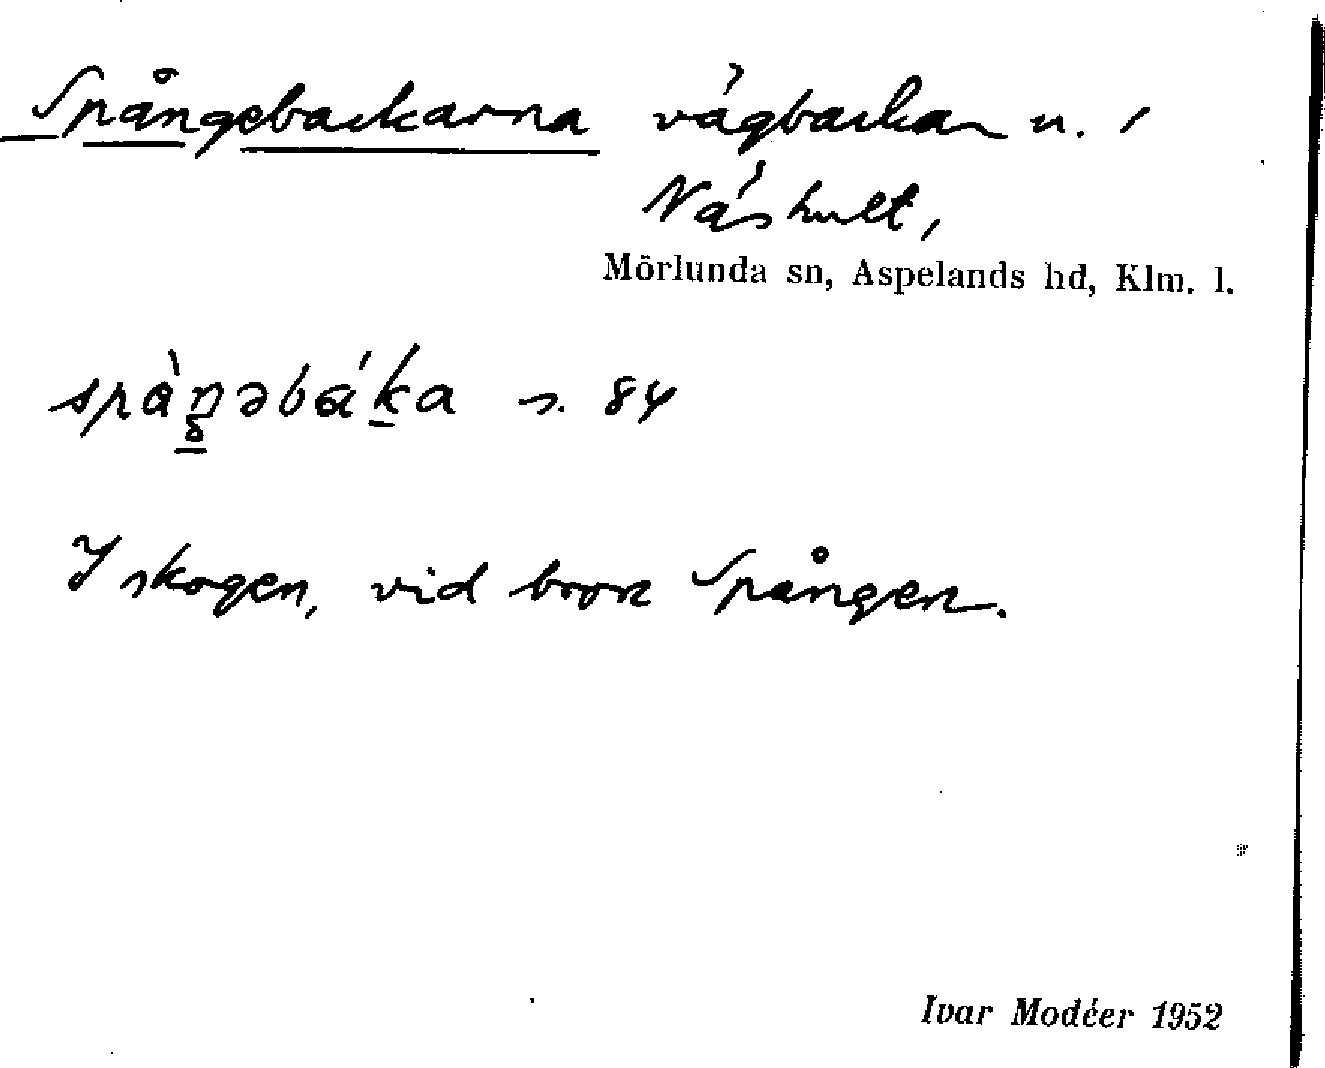 Spångebackarna vägbackar n. i
Näshult,
Mörlunda sn, Aspelands hd, Klm. l.
spàŋəbáka s. 84
I skogen, vid bron Spången.
Ivar Modéer 1952